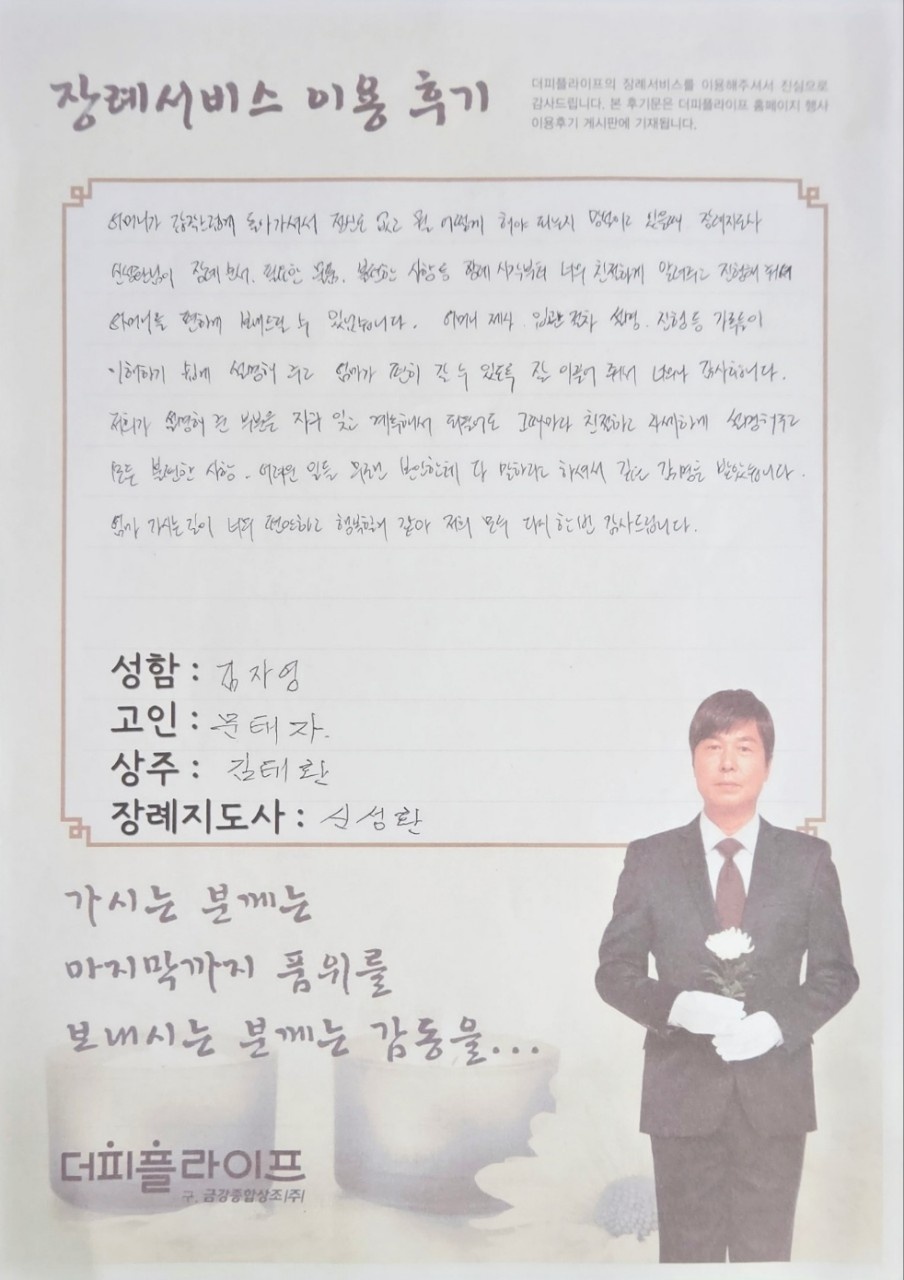 장례서비스 이용 후기
더피플라이프의 장례서비스를 이용해주셔서 진심으로
감사드립니다. 본 후기문은 더피플라이프 홈페이지 행사
이용후기 게시판에 기재됩니다.
어머니가 갑작스럽게 돌아가셔서 정신도 없고 뭘 어떻게 해야 되는지 멍석이고 있을때 장례지도사
신성환님이 장례 보서, 필요한 물품, 불편한 사항등 함께 시작부터 너무 친절하게 알려주고 진행해 줘서
어머니를 편하게 보내드릴 수 있었습니다. 어머니 제사, 입관 절차 설명, 진행 등 가족들이
이해하기 쉽게 설명해 주고 엄마가 편히 갈 수 있도록 잘 이끌어 줘서 너무나 감사합니다.
저희가 설명해 준 부분을 자꾸 잊고 계속해서 되물어도 그때마다 친절하고 자세하게 설명해주고
모든 불편한 사항, 어려운 일들 무조건 본인한테 다 말하라고 하셔서 깊은 감명을 받았습니다.
엄마 가시는 길이 너무 편안하고 행복할거 같아 저희 모두 다시 한번 감사드립니다.
성함 : 김자영
고인 : 문태자.
상주 : 김태환
장례지도사 : 신성환
가시는 분께는
마지막까지 품위를
보내시는 분께는 감동을...
더피플라이프
구. 금강종합상조(주)